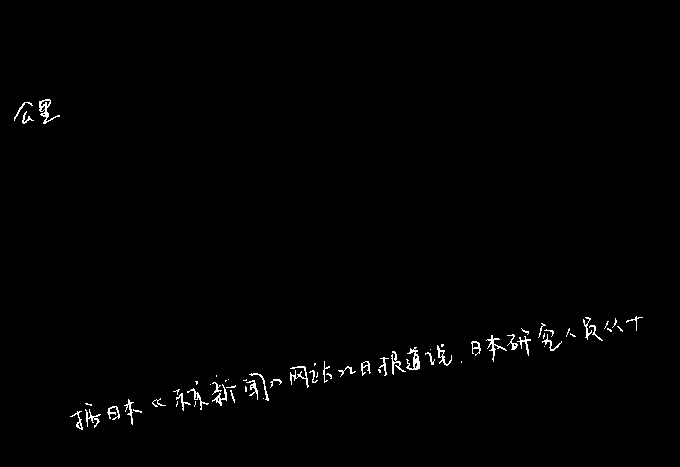 公里
据日本《东京新闻》网站22日报道说,日本研究人员从十